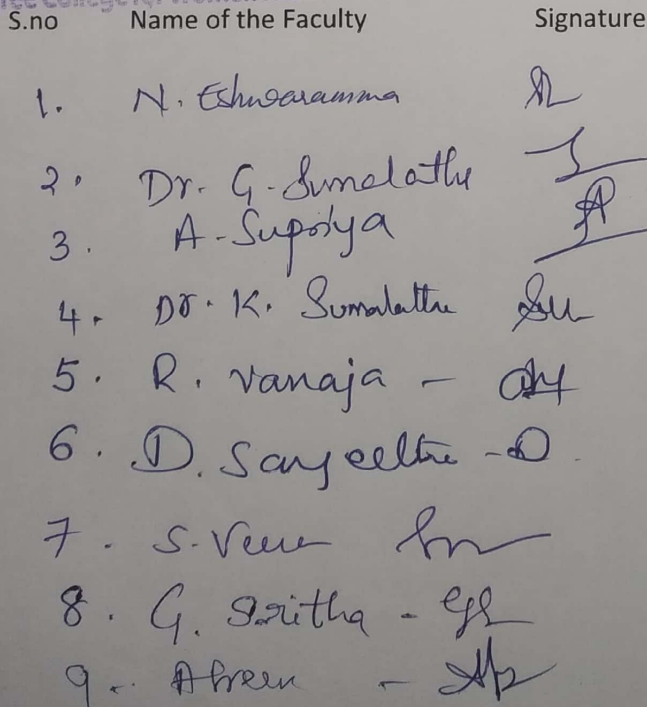 S.no Name of the Faculty Signature
1. N. Eshwaramma
2. Dr. G. Sumalatha
3. A. Supriya
4. Dr. K. Sumalatha
5. R. Vanaja -
6. D. Sangeetha -
7. S. Veena
8. G. Sritha -
9. Afreen -